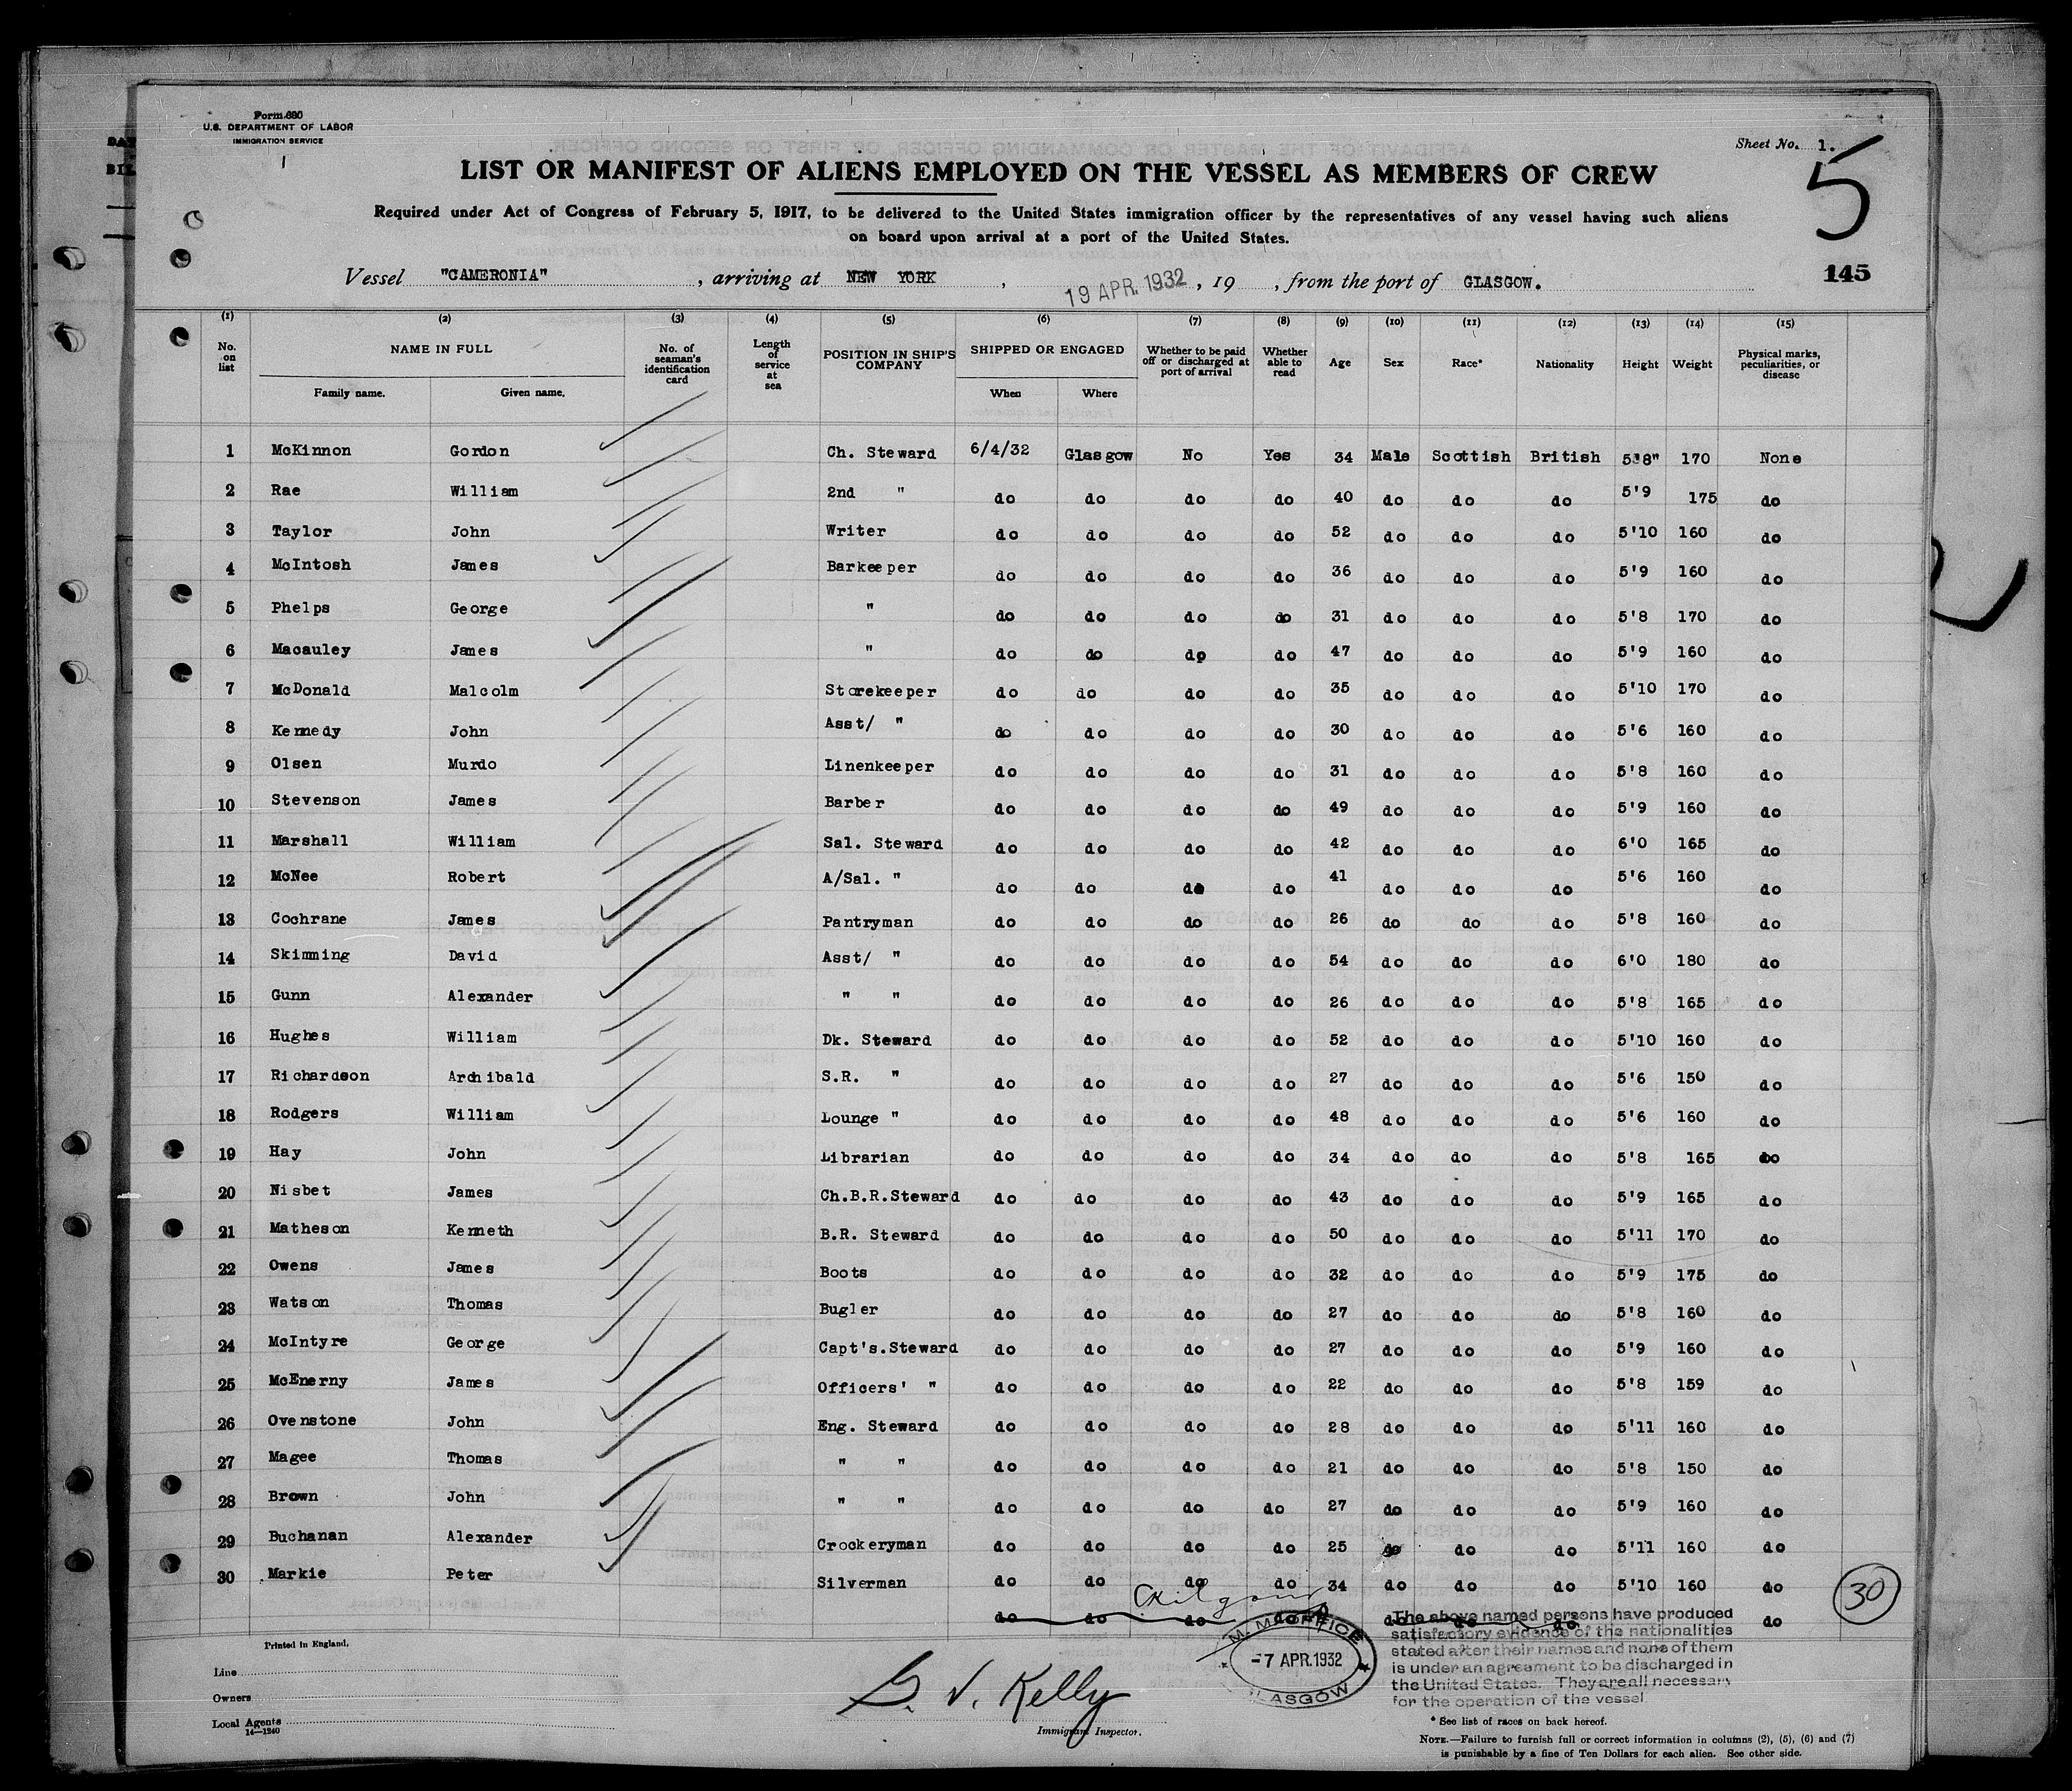 Form 680
U.S. DEPARTMENT OF LABOR
IMMIGRATION SERVICE
Sheet No. 1.
5
LIST OR MANIFEST OF ALIENS EMPLOYED ON THE VESSEL AS MEMBERS OF CREW
Required under Act of Congress of February 5, 1917, to be delivered to the United States immigration officer by the representatives of any vessel having such aliens
on board upon arrival at a port of the United States.
145
Vessel "CAMERONIA", arriving at NEW YORK, 19 APR. 1932, 19 , from the port of GLASGOW.
(1) (2) (3) (4) (5) (6) (7) (8) (9) (10) (11) (12) (13) (14) (15)
No. on list NAME IN FULL Family name. Given name. No. of seaman's identification card Length of service at sea POSITION IN SHIP'S COMPANY SHIPPED OR ENGAGED When Where Whether to be paid off or discharged at port of arrival Whether able to read Age Sex Race* Nationality Height Weight Physical marks, peculiarities, or disease
1 McKinnon Gordon Ch. Steward 6/4/32 Glasgow No Yes 34 Male Scottish British 5'8" 170 None
2 Rae William 2nd " do do do do 40 do do do 5'9 175 do
3 Taylor John Writer do do do do 52 do do do 5'10 160 do
4 McIntosh James Barkeeper do do do do 36 do do do 5'9 160 do
5 Phelps George " do do do do 31 do do do 5'8 170 do
6 Macauley James " do do do do 47 do do do 5'9 160 do
7 McDonald Malcolm Storekeeper do do do do 35 do do do 5'10 170 do
8 Kennedy John Asst/ " do do do do 30 do do do 5'6 160 do
9 Olsen Murdo Linenkeeper do do do do 31 do do do 5'8 160 do
10 Stevenson James Barber do do do do 49 do do do 5'9 160 do
11 Marshall William Sal. Steward do do do do 42 do do do 6'0 165 do
12 McNee Robert A/Sal. " do do do do 41 do do do 5'6 160 do
13 Cochrane James Pantryman do do do do 26 do do do 5'8 160 do
14 Skimming David Asst/ " do do do do 54 do do do 6'0 180 do
15 Gunn Alexander " " do do do do 26 do do do 5'8 165 do
16 Hughes William Dk. Steward do do do do 52 do do do 5'10 160 do
17 Richardson Archibald S.R. " do do do do 27 do do do 5'6 150 do
18 Rodgers William Lounge " do do do do 48 do do do 5'6 160 do
19 Hay John Librarian do do do do 34 do do do 5'8 165 do
20 Nisbet James Ch.B.R.Steward do do do do 43 do do do 5'9 165 do
21 Matheson Kenneth B.R. Steward do do do do 50 do do do 5'11 170 do
22 Owens James Boots do do do do 32 do do do 5'9 175 do
23 Watson Thomas Bugler do do do do 27 do do do 5'8 160 do
24 McIntyre George Capt's.Steward do do do do 27 do do do 5'9 160 do
25 McEnerny James Officers' " do do do do 22 do do do 5'8 159 do
26 Ovenstone John Eng. Steward do do do do 28 do do do 5'11 160 do
27 Magee Thomas " " do do do do 21 do do do 5'8 150 do
28 Brown John " " do do do do 27 do do do 5'9 160 do
29 Buchanan Alexander Crockeryman do do do do 25 do do do 5'11 160 do
30 Markie Peter Silverman do do do do 34 do do do 5'10 160 do
do do do do do do do do
30
The above named persons have produced
satisfactory evidence of the nationalities
stated after their names and none of them
is under an agreement to be discharged in
the United States. They are all necessary
for the operation of the vessel
M. M. OFFICE
-7 APR.1932
GLASGOW
Printed in England.
Line
Owners
Local Agents
14—1240
G. V. Kelly
Immigrant Inspector.
* See list of races on back hereof.
NOTE.—Failure to furnish full or correct information in columns (2), (5), (6) and (7)
is punishable by a fine of Ten Dollars for each alien. See other side.